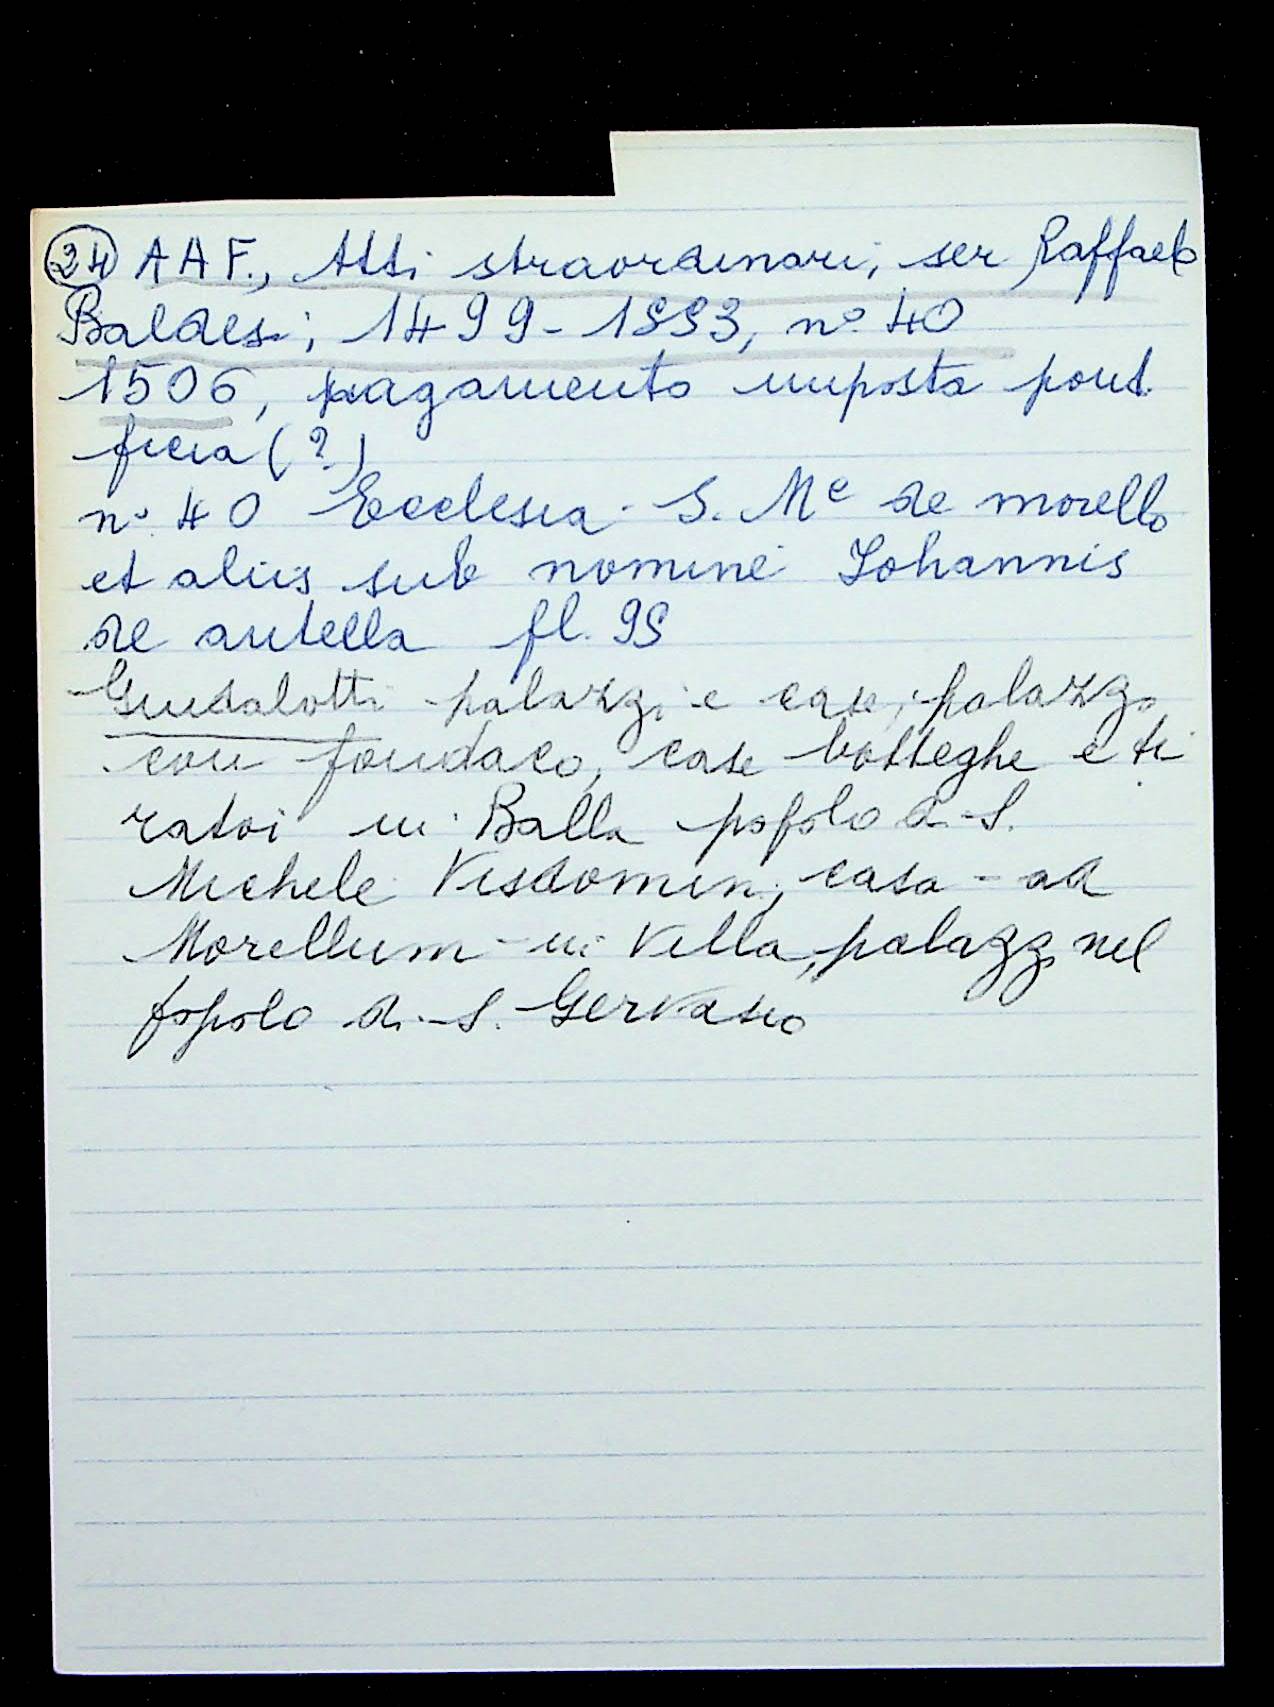 24 A A F., Atti straordinari, ser Raffaelo
Baldesi, 1499-1553, n° 40
1506, pagamento imposta pont
ficia (?)
n° 40 Ecclesia S. Me de morello
et aliis sub nomine Iohannis
de antella fl. 95
Guidalotti palazzi e case, palazzo
con fondaco, case botteghe e ti
ratoi in Balla popolo di S.
Michele Visdomini, casa ad
Morellum in Villa, palazzo nel
popolo di S. Gervasio